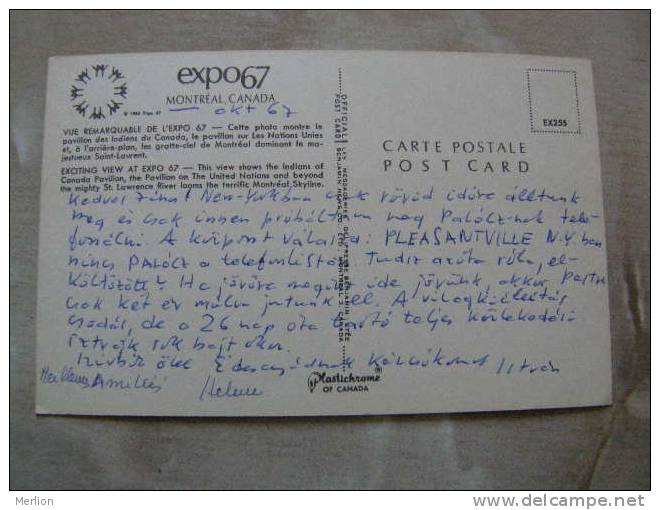 expo67
MONTRÉAL, CANADA
okt 67
VUE REMARQUABLE DE L'EXPO 67 — Cette photo montre le
pavillon des Indiens du Canada, le pavillon sur Les Nations Unies
et, à l'arrière-plan, les gratte-ciel de Montréal dominant le ma-
jestueux Saint-Laurent.
EXCITING VIEW AT EXPO 67 — This view shows the Indians of
Canada Pavilion, the Pavilion on The United Nations and beyond
the mighty St. Lawrence River looms the terrific Montréal Skyline.
OFFICIAL POST CARD
EX255
CARTE POSTALE
POST CARD
Kedves New-Yorkban csak rövid időre álltunk
meg és csak innen próbáltam meg Palócz-nak tele-
fonálni. A központ válasza: PLEASANTVILLE N.Y.ban
nincs PALÓCZ a telefonlistán. Tudsz azóta róla, el-
költözött? Ha jövőre megint ide jövünk, akkor
csak két év múlva jutunk el. A világkiállítás
csodás, de a 26 nap óta tartó teljes közlekedési
sztrájk sok bajt okoz.
ölel István
Meilleures Amitiés Helene
Plastichrome®
OF CANADA
Merlion
http://www.delcampe.net